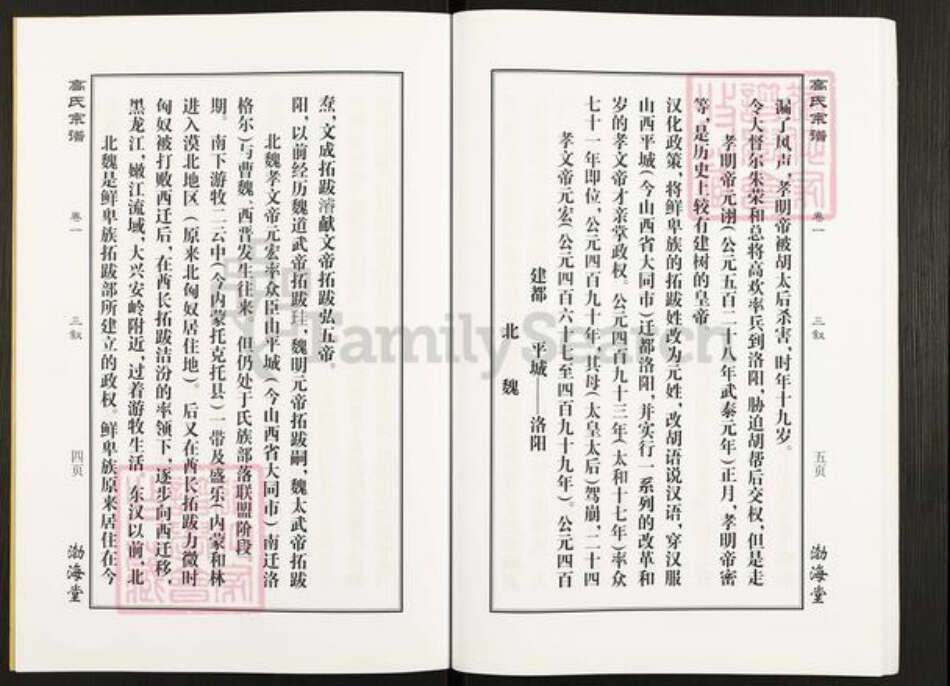 高氏宗谱 卷一 三叙 四页 渤海堂
北魏是鲜卑族拓跋部所建立的政权。鲜卑族原来居住在今
黑龙江，嫩江流域，大兴安岭附近，过着游牧生活，东汉以前，北
匈奴被打败西迁后，在酋长拓跋洁汾的率领下，逐步向西迁移，
进入漠北地区（原来北匈奴居住地）。后又在酋长拓跋力微时
期。南下游牧二云中（今内蒙托克托县）一带及盛乐（内家和林
格尔）与曹魏、西晋发生往来，但仍处于氏族部落联盟阶段。
北魏孝文帝元宏率众臣山平城（今山西省大同市）南迁洛
阳，以前经历魏道武帝拓跋珪，魏明元帝拓跋嗣，魏太武帝拓跋
焘，文成拓跋濬献文帝拓跋弘五帝。
北 魏
建都 平城——洛阳
孝文帝元宏（公元四百六十七至四百九十九年）。公元四百
七十一年即位，公元四百九十年，其母（太皇太后）驾崩，二十四
岁的孝文帝才亲掌政权。公元四百九十三年（太和十七年）率众
山西平城（今山西省大同市）迁都洛阳，并实行一系列的改革和
汉化政策，将鲜卑族的拓跋姓改为元姓，改胡语说汉语，穿汉服
等，是历史上较有建树的皇帝。
孝明帝元诩（公元五百二十八年武泰元年）正月，孝明帝密
令大督尔朱荣和总将高欢率兵到洛阳，胁迫胡帮后交权，但是走
漏了风声，孝明帝被胡太后杀害，时年十九岁。
高氏宗谱 卷一 三叙 五页 渤海堂
FamilySearch